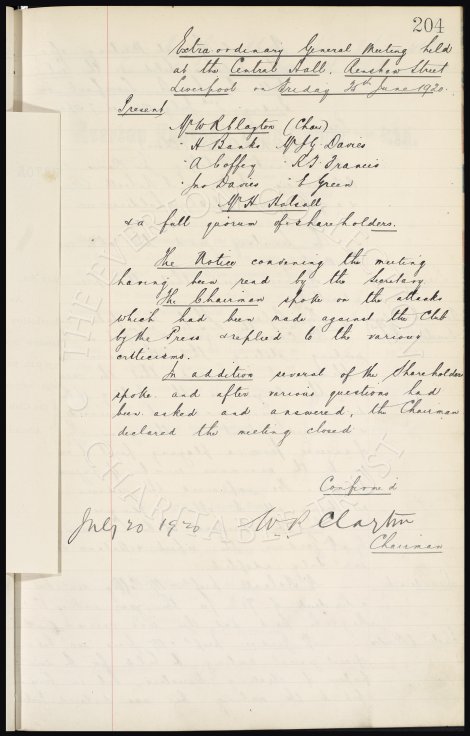 204
Extra-ordinary General Meeting held
at the Central Hall, Renshaw Street
Liverpool on Friday 25th June 1920.
Present
Mr W R Clayton (Chair)
" H Banks Mr J G Davies
" A Coffey " R J Francis
" Jno Davies " E Green
Mr H Halsall
& a full quorum of shareholders.
The Notice convening the meeting
having been read by the Secretary
The Chairman spoke on the attacks
which had been made against the Club
by the Press & replied to the various
criticisms.
In addition several of the Shareholders
spoke and after various questions had
been asked and answered, the Chairman
declared the meeting closed
Confirmed
July 20 1920 W. R Clayton
Chairman
THE EVERTON
CHARITABLE TRUST